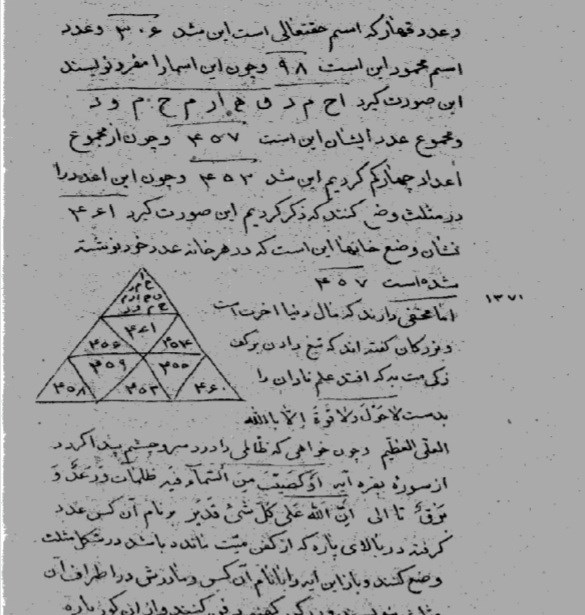 و عدد قهار که اسم حقتعالی است این شد ۳۰۶ و عدد
اسم محمود این است ۹۸ و چون این اسما را مفرد نویسند
این صورت گیرد ا ح م د ق ه ا ر م ح م و د
و مجموع عدد ایشان این است ۴۵۷ و چون از مجموع
اعداد چهار کم کردیم این شد ۴۵۳ و چون این اعدد را
در مثلث وضع کنند که ذکر کردیم این صورت گیرد ۴۶۱
نشان وضع خانها این است که در هر خانه عدد خود نوشته
شده است ۴۵۷
۱۳۷۱
اما مخفی دارند که مال دنیا آخرت است
و بزرگان گفته اند که تیغ دادن بر کف
زنگی مست به که افتد علم نادان را
بدست لا حول ولا قوة إلا بالله
العلی العظیم و چون خواهی که ظالمی را درد سر و چشم پیدا کردد
از سورهٔ بقره آیه أو كصيب من السماء فيه ظلمات ورعد و
برق تا الی إن الله علی كل شئ قدير بر نام آن کس عدد
گرفته در بالای پاره که از کفن میت مانده باشد در شکل مثلث
وضع کنند و باز این آیه را با نام آن کس و مادرش در اطراف آن
۴۶۱
۴۵۶
۴۵۴
۴۵۹
۴۵۵
۴۵۸
۴۵۳
۴۶۰